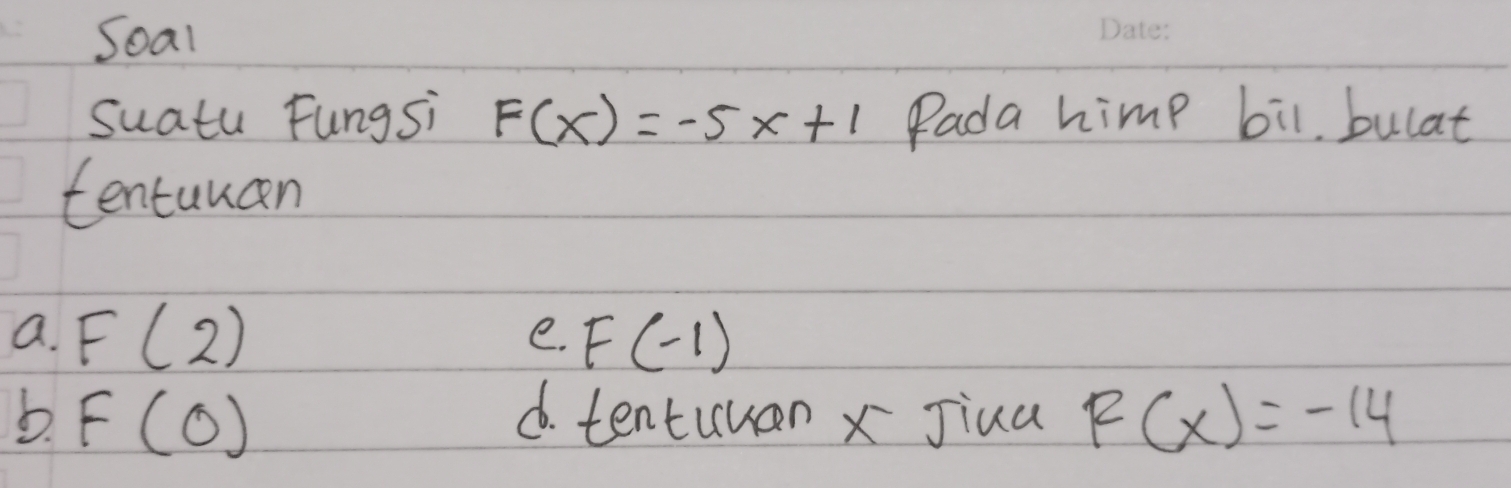 Soal
Date:
suatu Fungsi F(x) = -5x+1 Pada himp bil. bulat
tentukan
a. F(2)
e. F(-1)
b. F(0)
d. tentukan x Jika F(x) = -14